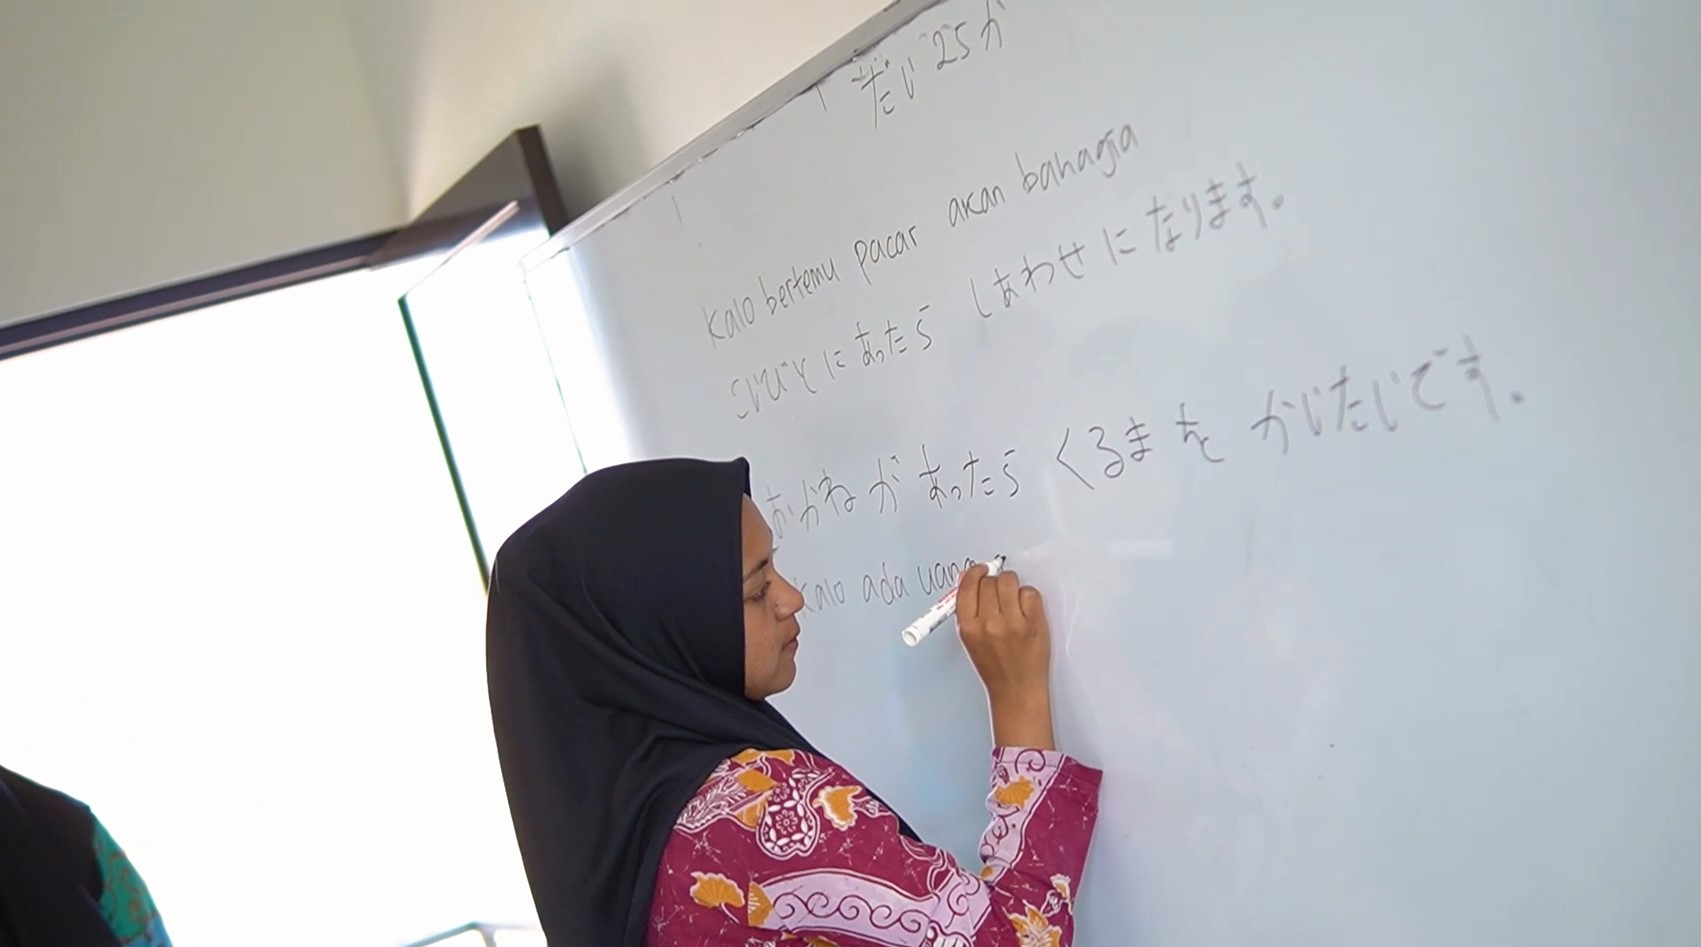 だい25か
kalo bertemu pacar akan bahagia
こいびとにあったら しあわせに なります。
おかねが あったら くるまを かいたいです。
kalo ada uang